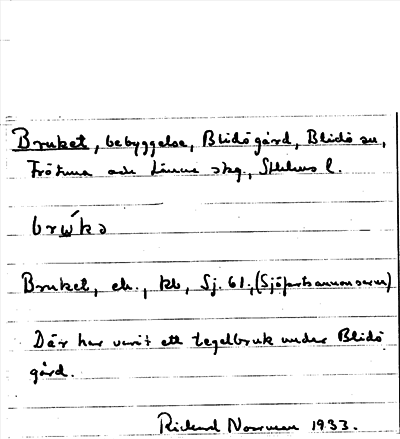 Bruket, bebyggelse, Blidö gård, Blidö sn,
Frötuna och Länna skg, Sthlms l.
brẃkə
Bruket, ek., kb, Sj. 61, (Sjöfartsannonserna)
Där har varit ett tegelbruk under Blidö
gård.
Rickard Norrman 1933.